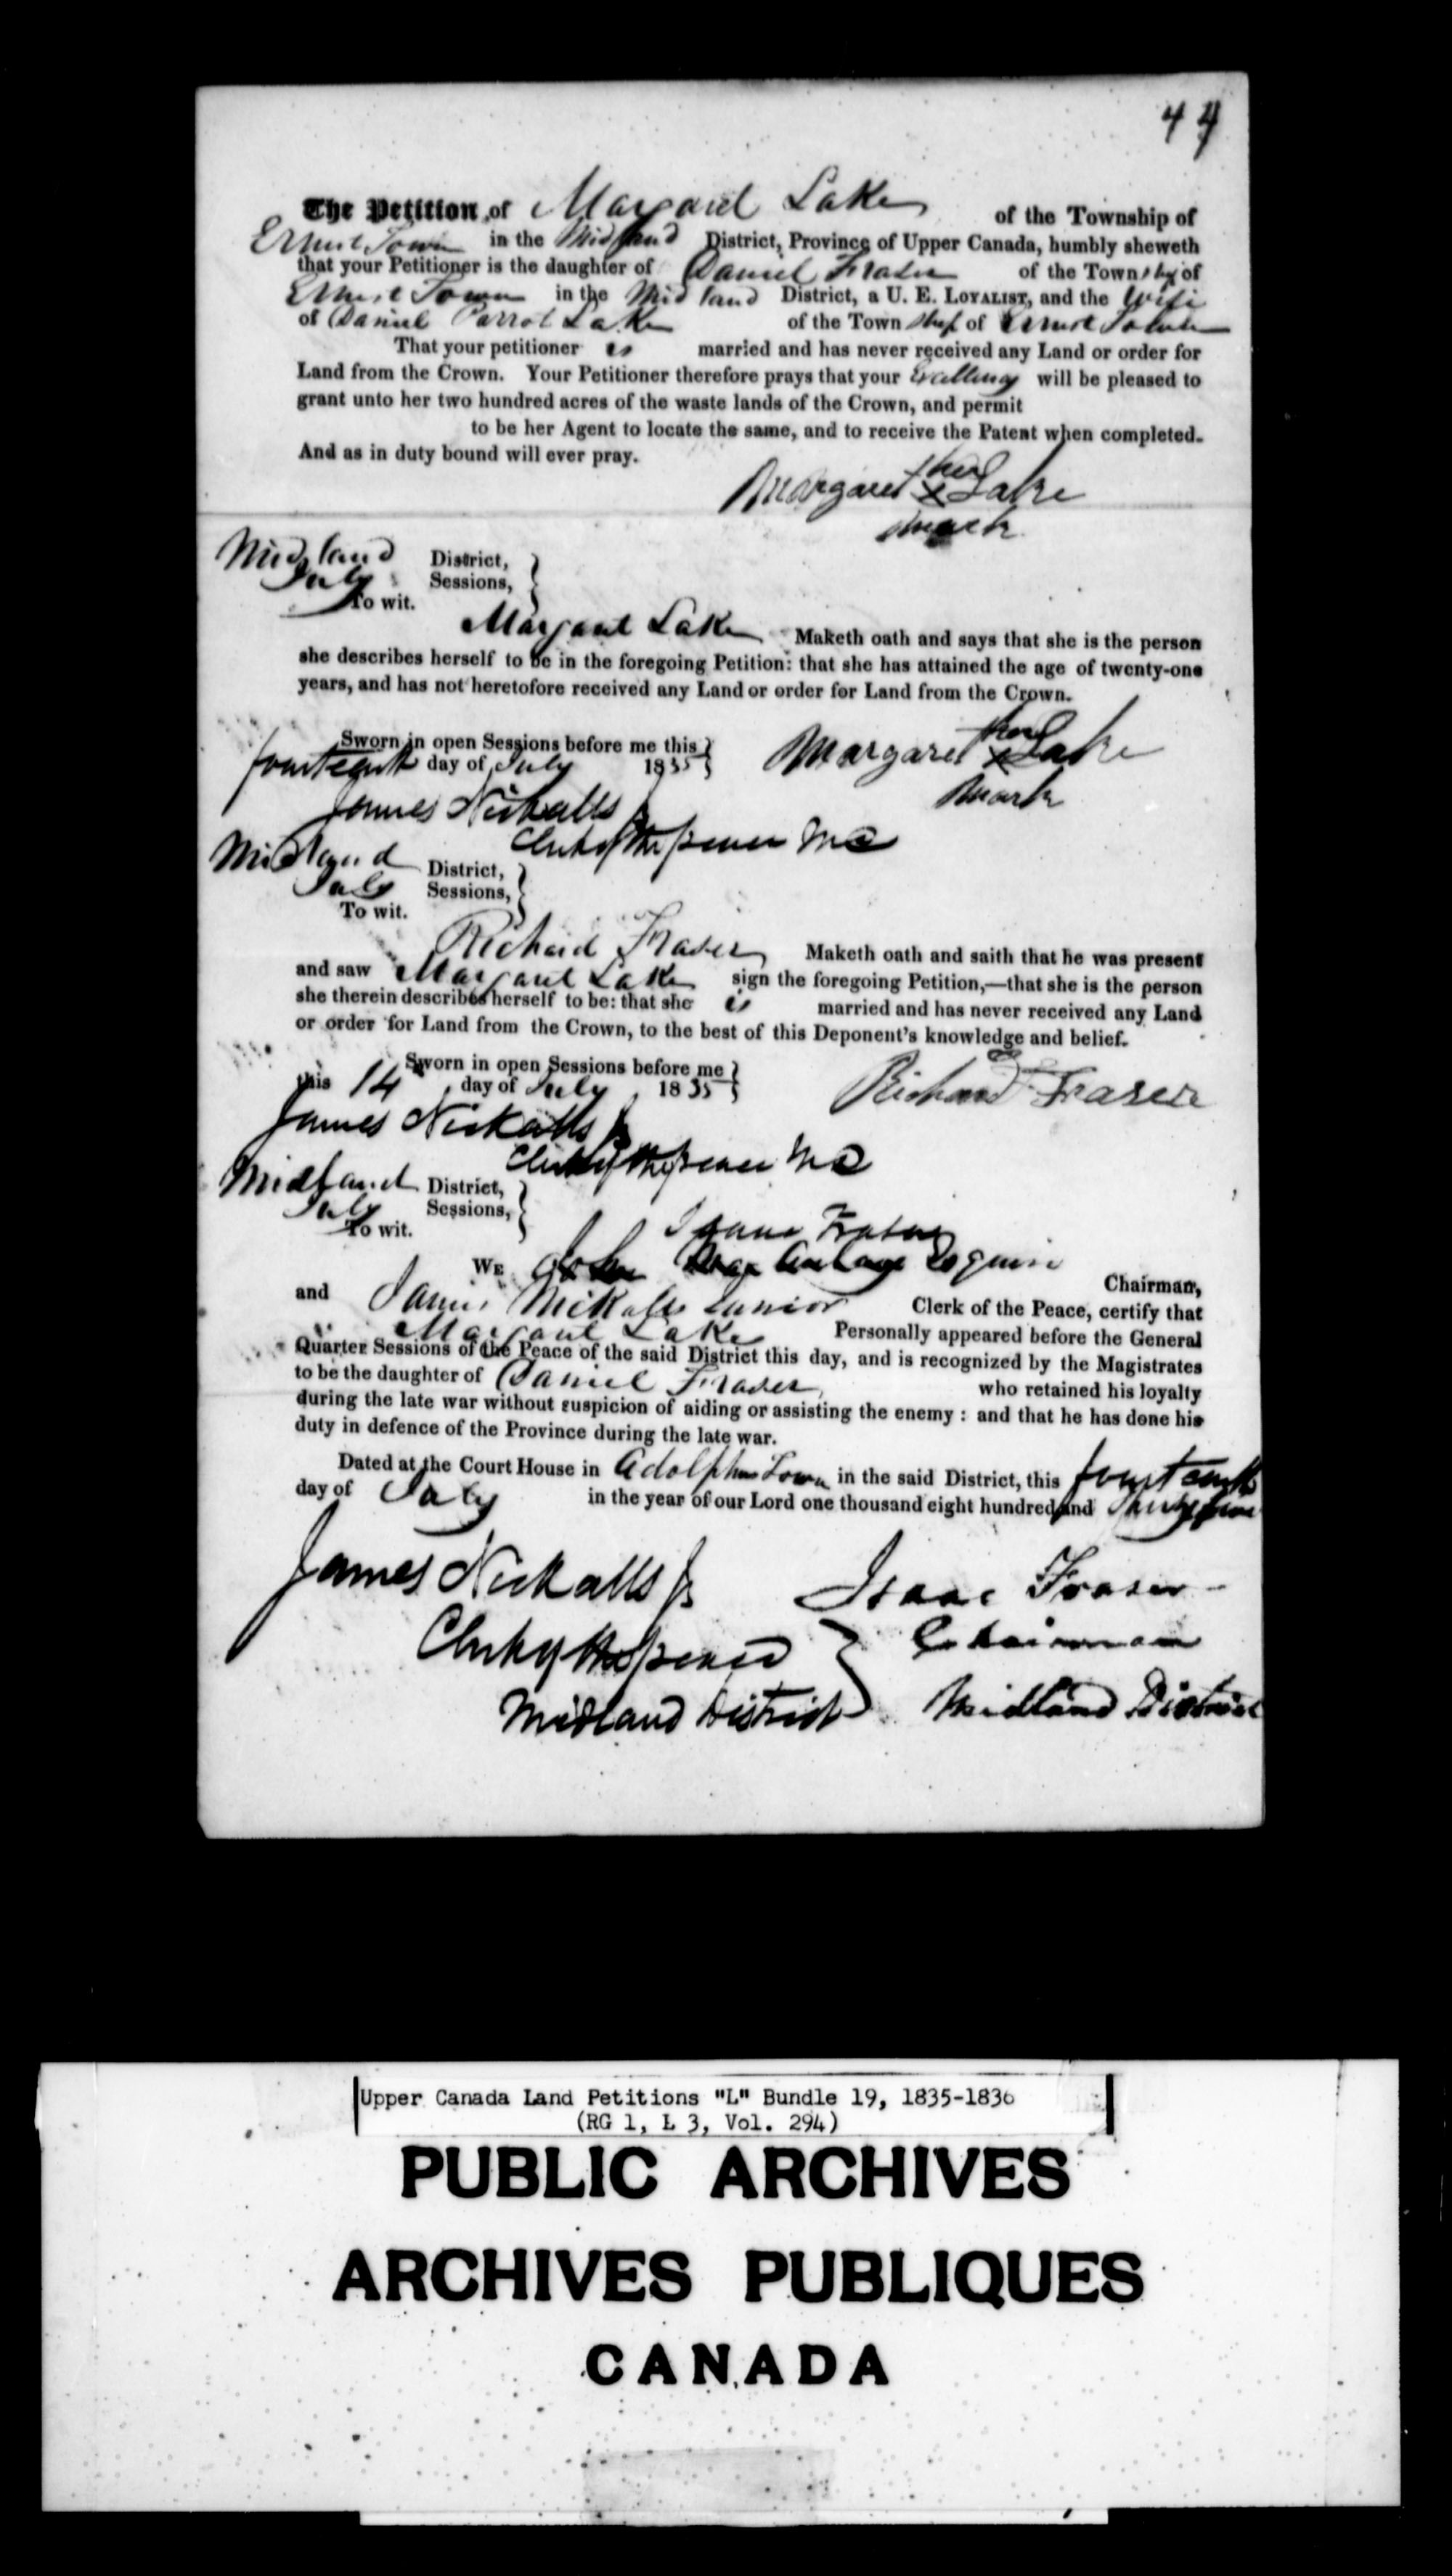 44
The Petition of Margaret Lake of the Township of
Ernest Town in the Midland District, Province of Upper Canada, humbly sheweth
that your Petitioner is the daughter of Daniel Fraser of the Township of
Ernest Town in the Midland District, a U. E. LOYALIST, and the Wife
of Daniel Parrot Lake of the Township of Ernest Town
That your petitioner is married and has never received any Land or order for
Land from the Crown. Your Petitioner therefore prays that your Excellency will be pleased to
grant unto her two hundred acres of the waste lands of the Crown, and permit
to be her Agent to locate the same, and to receive the Patent when completed.
And as in duty bound will ever pray.
her
Margaret x Lake
mark
Midland District,
July Sessions,
To wit.
Margaret Lake Maketh oath and says that she is the person
she describes herself to be in the foregoing Petition: that she has attained the age of twenty-one
years, and has not heretofore received any Land or order for Land from the Crown.
Sworn in open Sessions before me this
fourteenth day of July 1835
her
Margaret x Lake
mark
James Nickalls Jr
Clerk of the peace M D
Midland District,
July Sessions,
To wit.
Richard Fraser Maketh oath and saith that he was present
and saw Margaret Lake sign the foregoing Petition,—that she is the person
she therein describes herself to be: that she is married and has never received any Land
or order for Land from the Crown, to the best of this Deponent's knowledge and belief.
Sworn in open Sessions before me
this 14 day of July 1835
Richard Fraser
James Nickalls Jr
Clerk of the peace M D
Midland District,
July Sessions,
To wit.
Isaac Fraser
WE Esquire Chairman,
and James Nickalls Junior Clerk of the Peace, certify that
Margaret Lake Personally appeared before the General
Quarter Sessions of the Peace of the said District this day, and is recognized by the Magistrates
to be the daughter of Daniel Fraser who retained his loyalty
during the late war without suspicion of aiding or assisting the enemy : and that he has done his
duty in defence of the Province during the late war.
Dated at the Court House in Adolphus Town in the said District, this fourteenth
day of July in the year of our Lord one thousand eight hundred and thirty five
James Nickalls Jr Isaac Fraser
Clerk of the peace Chairman
Midland District Midland District
Upper Canada Land Petitions "L" Bundle 19, 1835-1836
(RG 1, L 3, Vol. 294)
PUBLIC ARCHIVES
ARCHIVES PUBLIQUES
CANADA